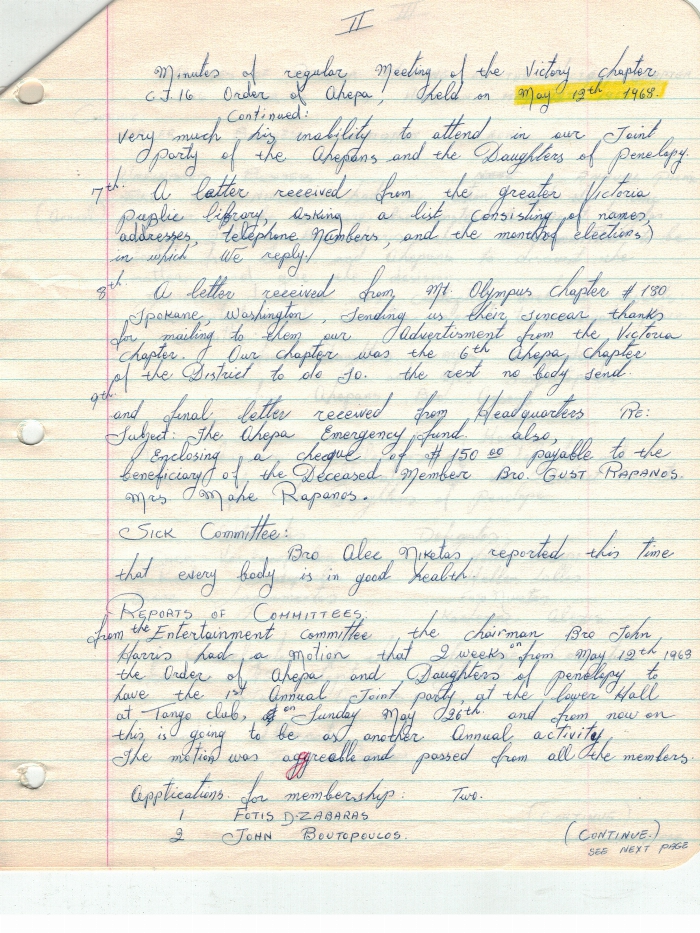 II
Minutes of regular Meeting of the Victory chapter
C.J.16 Order of Ahepa, held on May 12th 1968.
Continued:
very much his inability to attend in our Joint
party of the Ahepans and the Daughters of penelopy.
7th. A latter received from the greater Victoria
puplic library, asking a list consisting of names,
addresses, telephone Numbers, and the month(of elections)
in which We reply.
8th. A letter received from Mt. Olympus chapter # 180
Spokane, Washington, Sending us their sincear thanks
for mailing to them our Advertisment from the Victoria
chapter. Our chapter was the 6th Ahepa, chapter
of the District to do so. the rest no body send.
9th.
and final letter received from Headquarters RE:
Subject: The Ahepa Emergency fund. also,
Enclosing a cheque of $ 150 00 payable to the
beneficiary of the Deceased Member Bro. GUST RAPANOS.
Mrs Mahe Rapanos.
SICK Committee:
Bro Alec Niketas reported this Time
that every body is in good health.
REPORTS OF COMMITTEES.
from the Entertainment committee the chairman Bro John
Harris had a Motion that 2 weeks on from May 12th 1968
the Order of Ahepa and Daughters of penelopy to
have the 1st Annual Joint party, at the lower Hall
at Tango club, on Sunday May 26th. and from now on
this is going to be as another Annual activity.
The motion was aggreable and passed from all the members.
Applications for membership: Two.
1 FOTIS D. ZABARAS
2 JOHN BOUTOPOULOS.
(CONTINUE.)
SEE NEXT PAGE